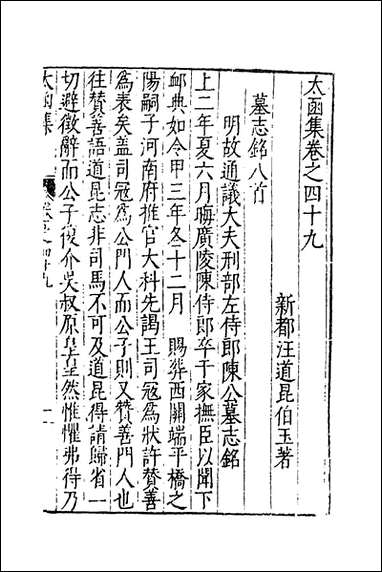 太函集卷之四十九
新都汪道昆伯玉著
墓志銘八首
明故通議大夫刑部左侍郎陳公墓志銘
上二年夏六月晦廣陵陳侍郎卒于家撫臣以聞下
卹典如令甲三年冬十二月　賜葬西關端平橋之
陽嗣子河南府推官大科先謁王司寇為狀許贊善
為表矣盖司寇為公門人而公子則又贊善門人也
往贊善語道昆志非司馬不可及道昆得請歸省一
切避徵辭而公子復介吳叔原皇皇然惟懼弗得乃
太函集
卷之四十九
一